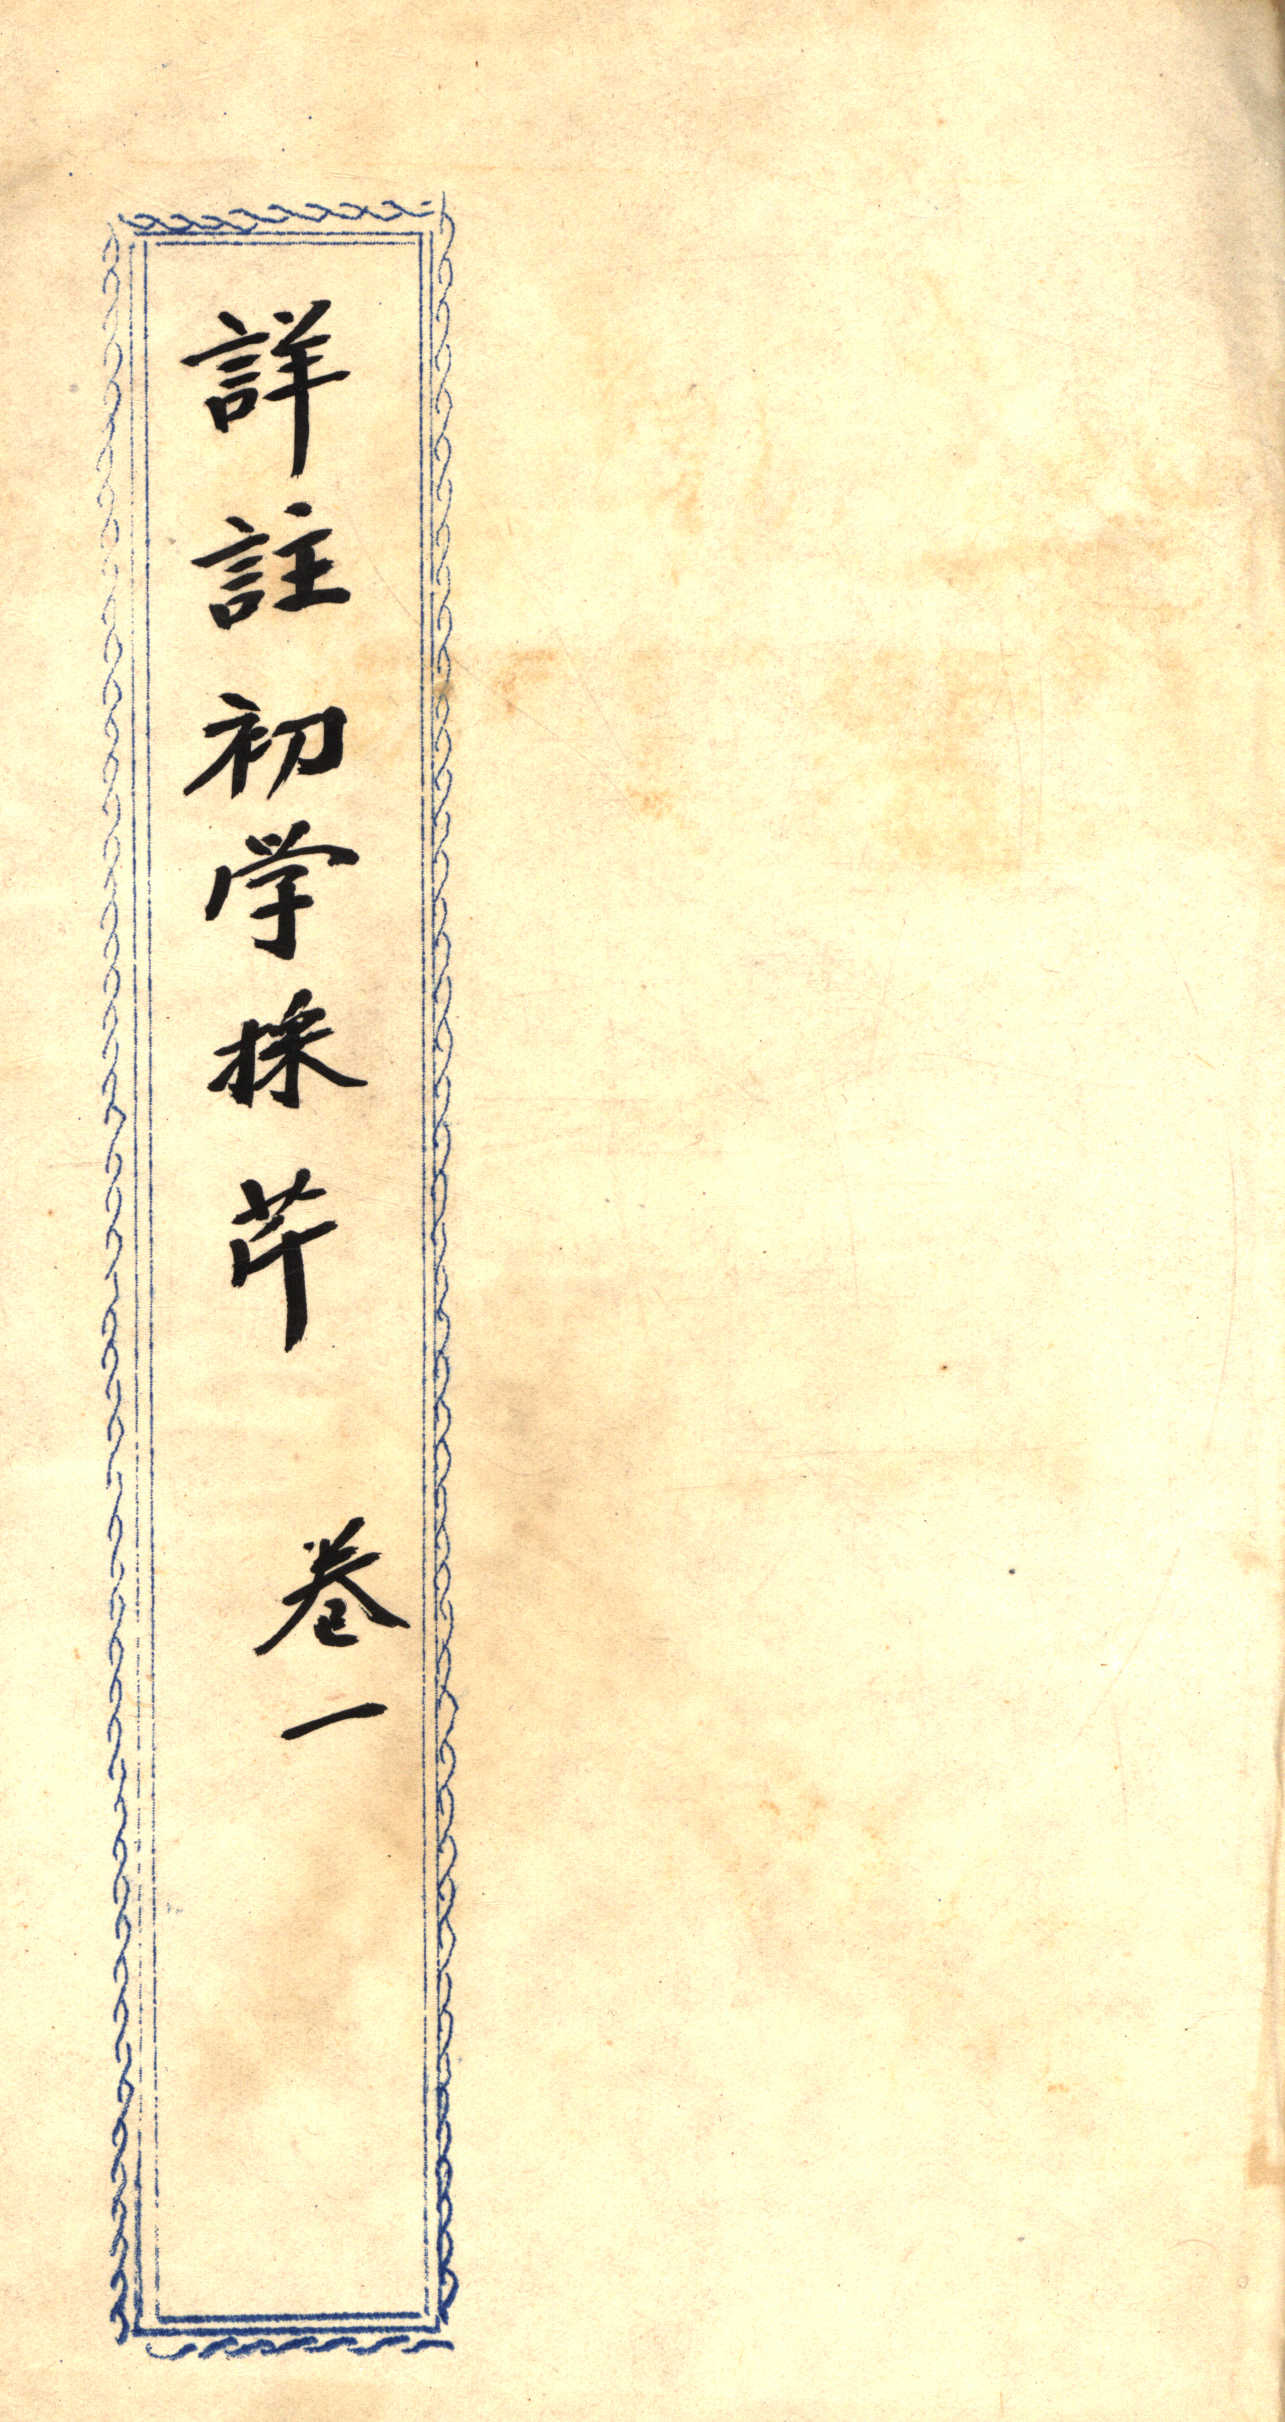 詳註初学採芹
卷一